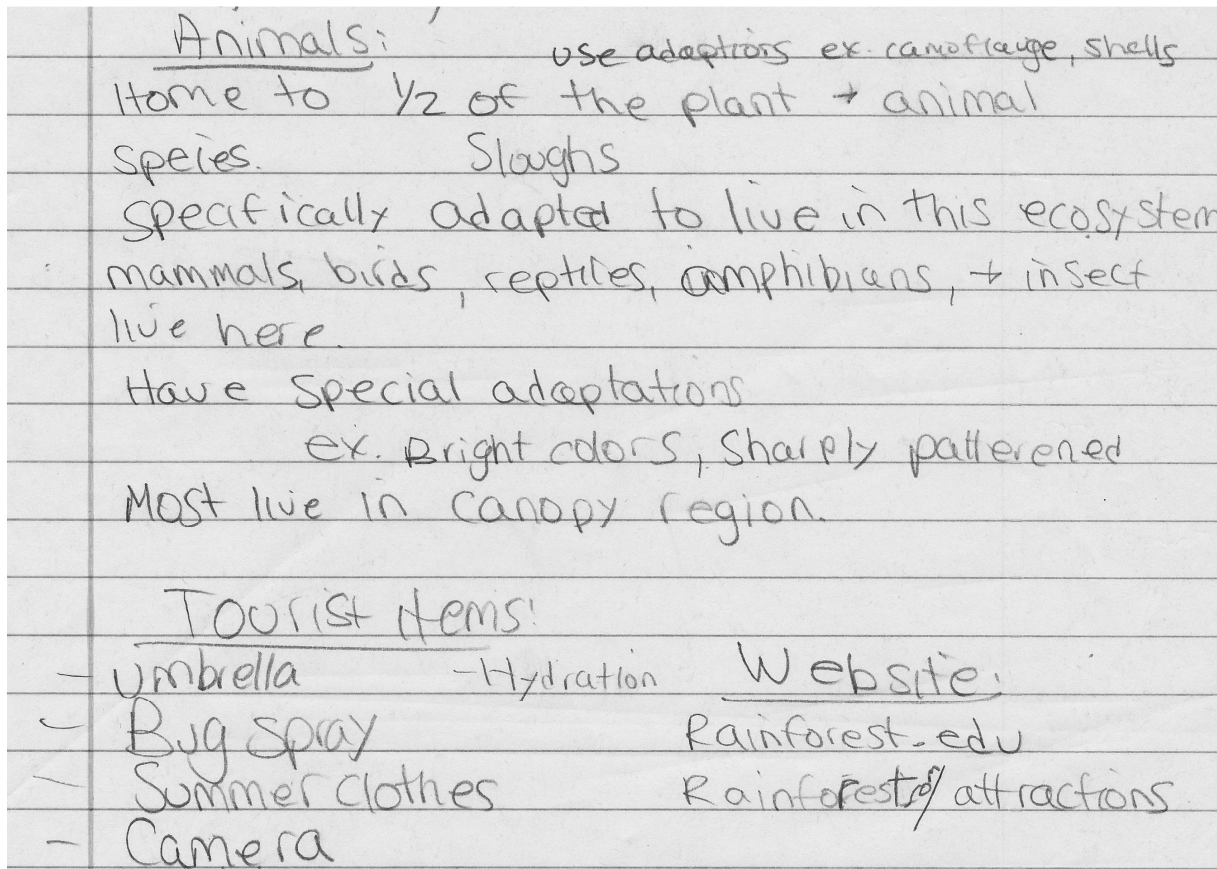 Animals:
use adaptions ex. camoflauge, shells
Home to 1/2 of the plant + animal
speies. Sloughs
specifically adapted to live in this ecosystem
mammals, birds, reptiles, amphibians, + insect
live here.
Have special adaptations
ex. Bright colors, Sharply patterened
Most live in canopy region.
Tourist items:
- Umbrella - Hydration
- Bug spray
- Summer clothes
- Camera
Website:
Rainforest.edu
Rainforest / attractions